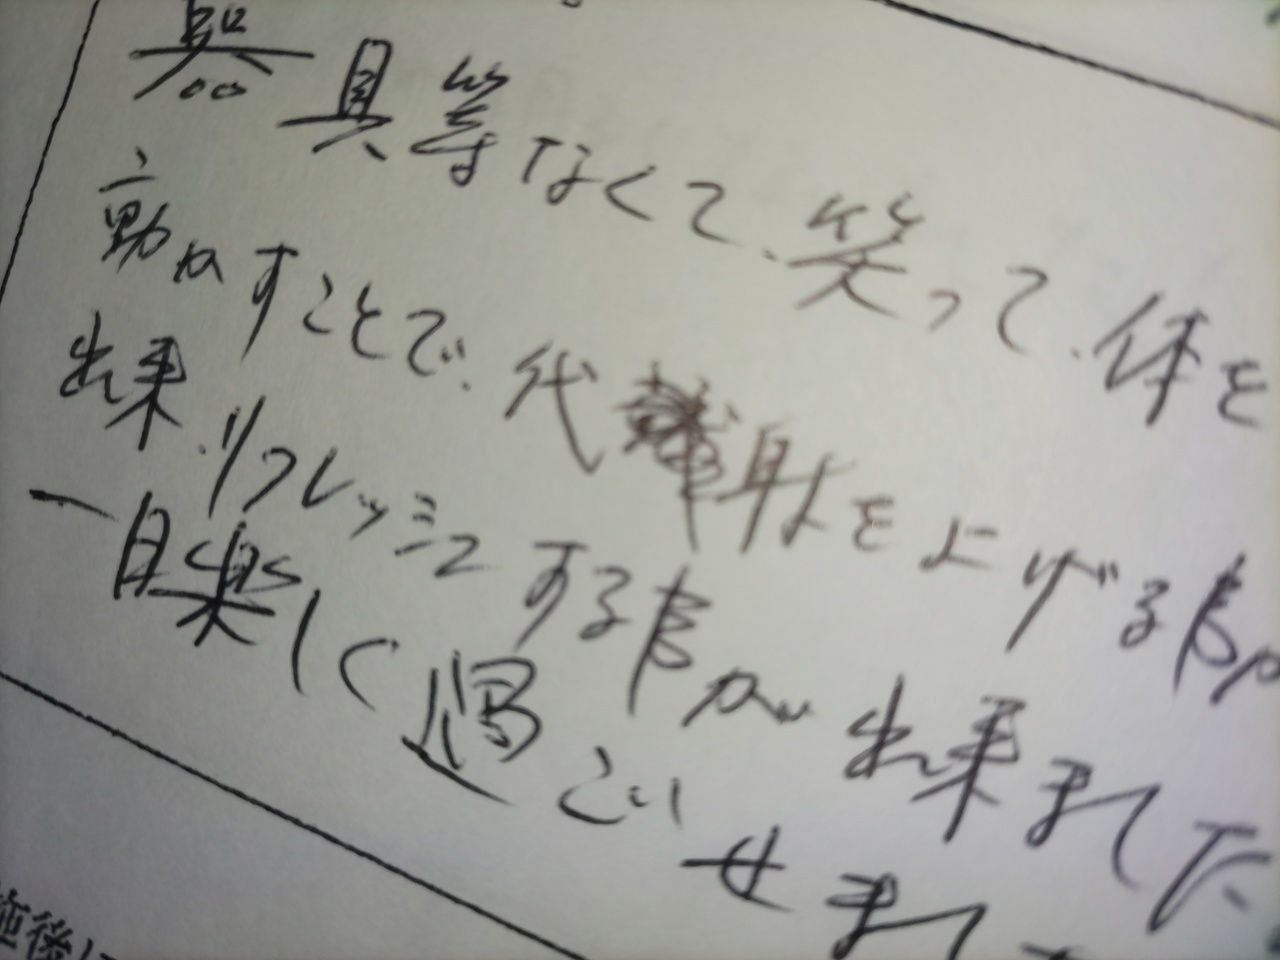 器具等なくて、笑って、体を
動かすことで、代射を上げる事が
出来、リフレッシュする事が出来ました
一日楽しく過ごせました
施後に